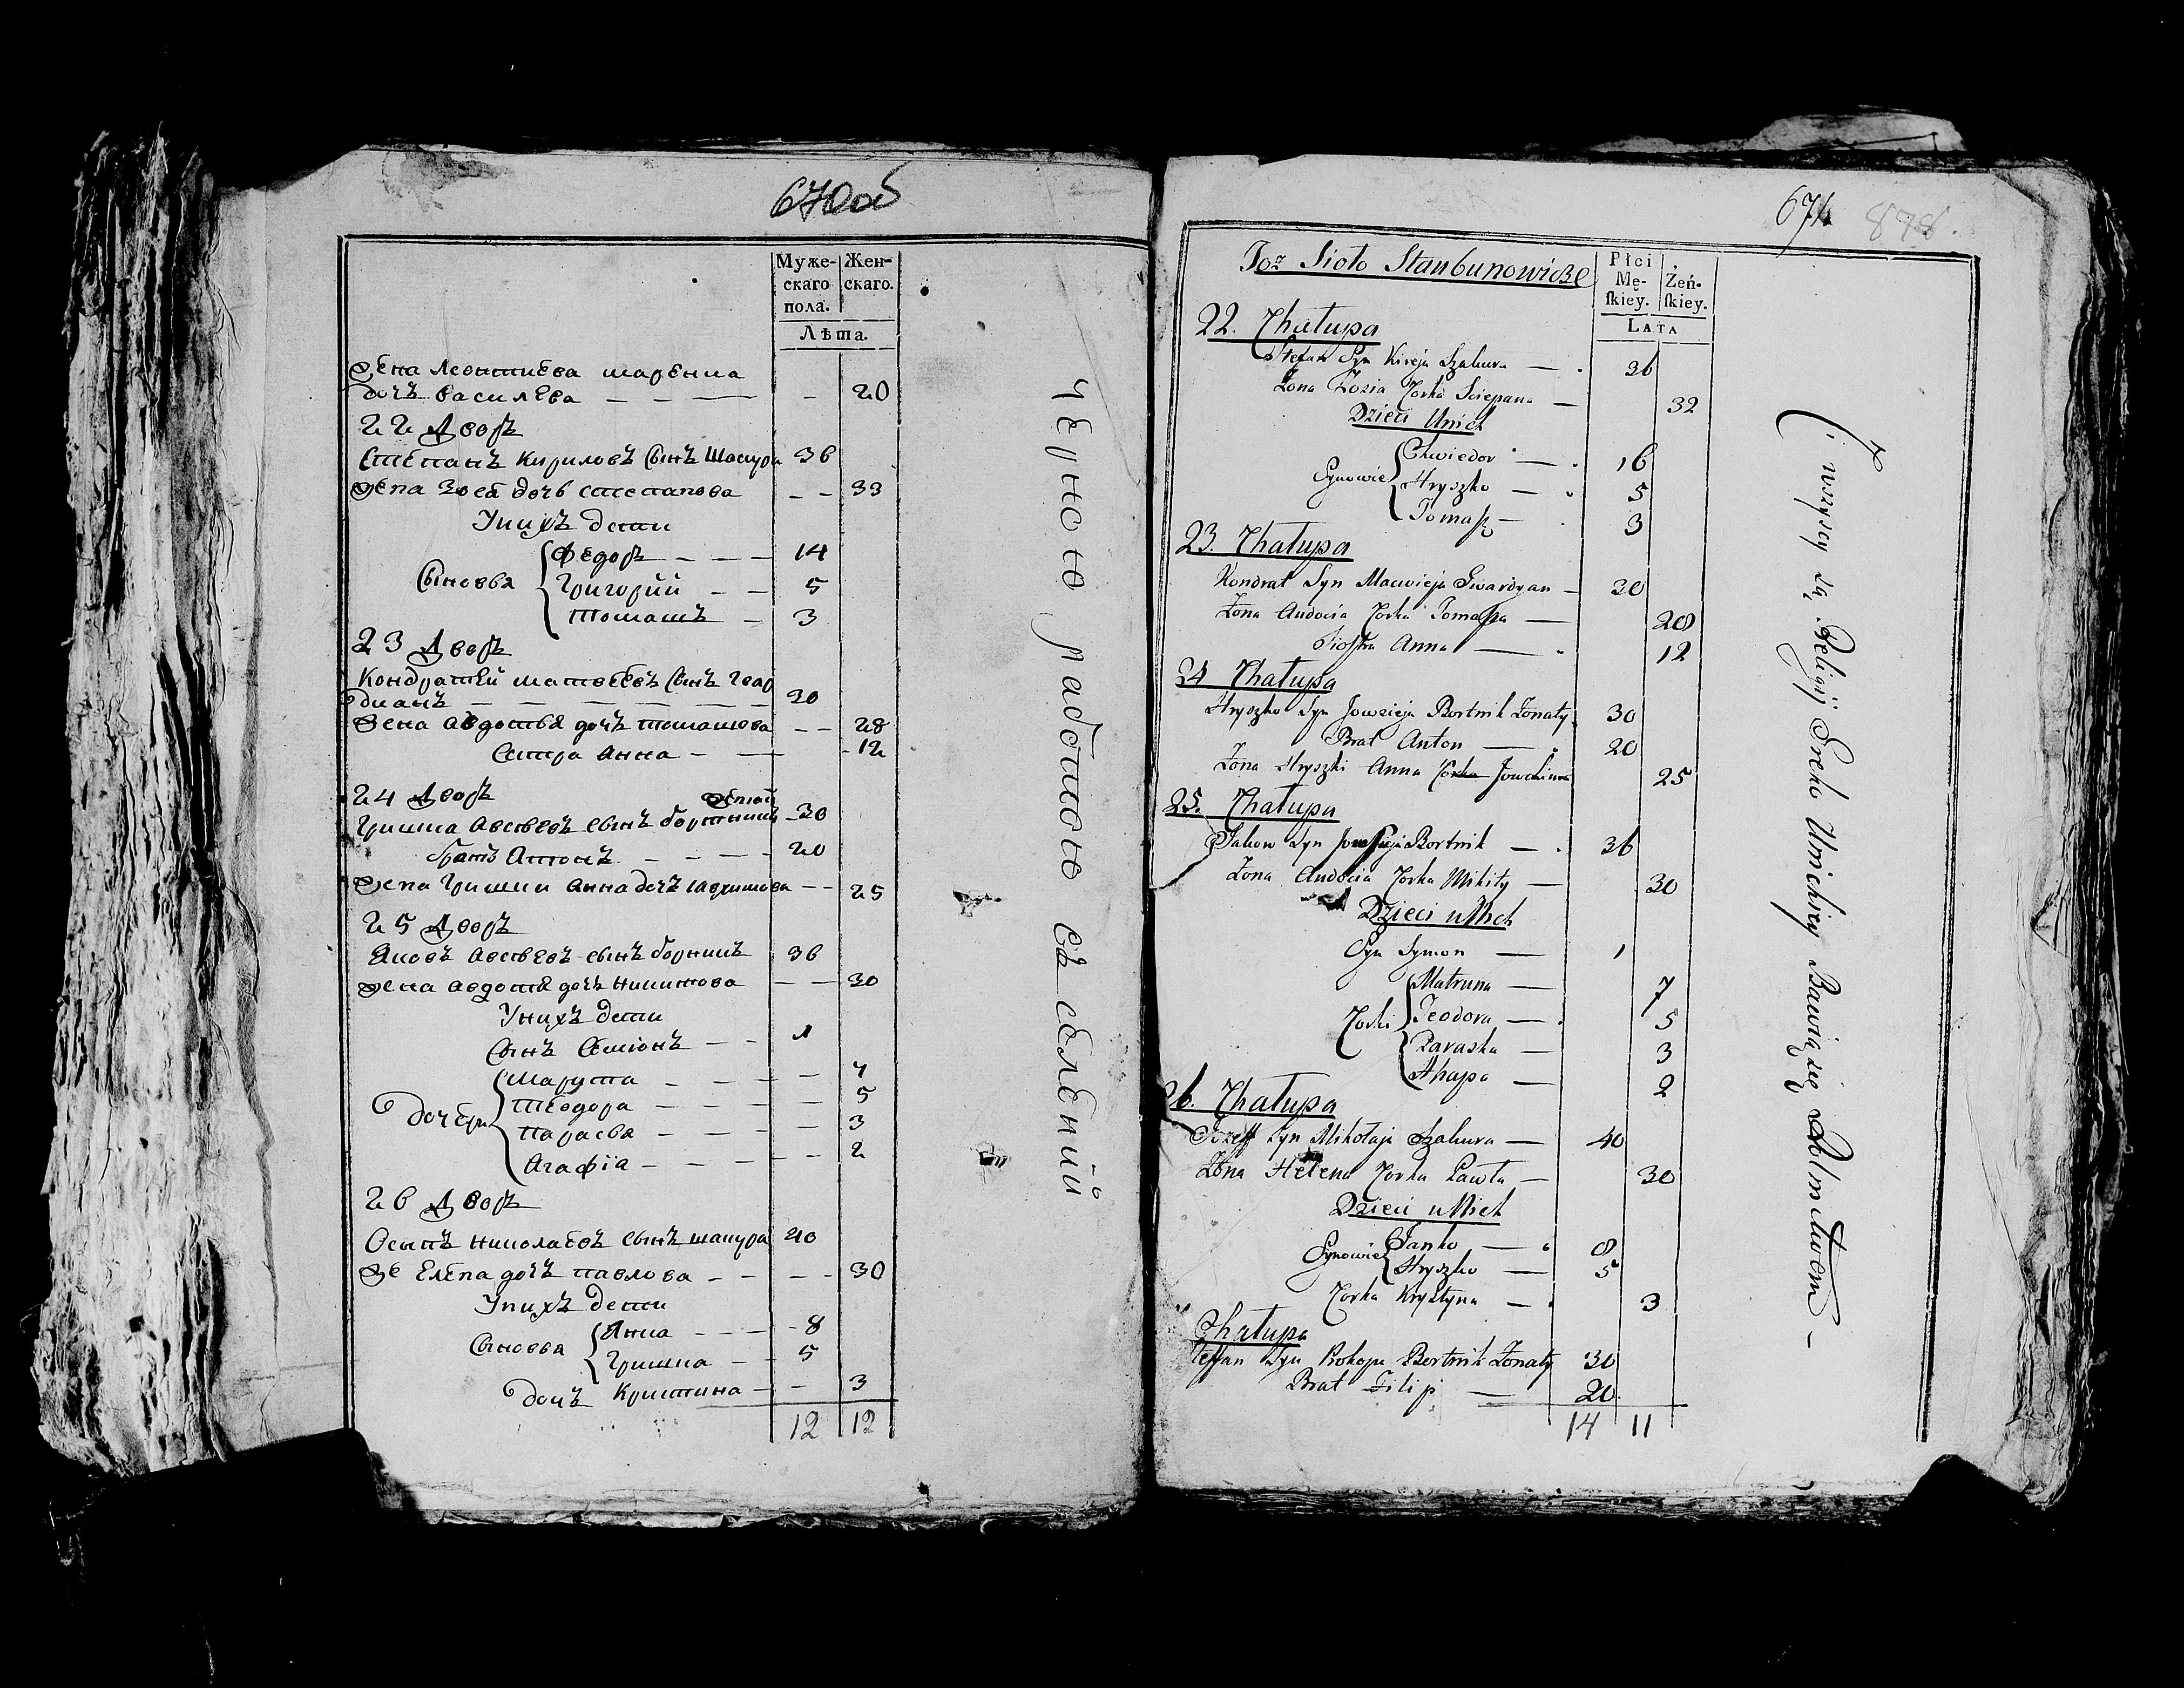 670об
Муже-
скаго
пола.
Жен-
скаго.
Лѣта.
Жена Леонтиева Марѣна
дочъ василѣва — — — — 20
22 Дворъ
Степанъ Кириловъ Сынъ Шакура 36
жена Зося дочъ степанова — — 33
Унихъ дети
Сыновя { Федоръ — — — 14
Григорий — — 5
Томашъ — 3
23 Дворъ
Кондратей матвеевъ Сынъ Гвар
дианъ — — — — — — 30
жена авдотья дочъ томашова — — 28
Сестра Анна — — — 12
24 Дворъ
Гришка Авсѣевъ сынъ бортникъ — 30
братъ Антонъ — — — — 20
жена Гришки Анна дочъ — — 25
25 Дворъ
Яковъ Авсѣевъ сынъ борникъ 36
жена авдотя дочъ никитова — — 30
Унихъ дети
Сынъ Семионъ — — 1
Дочери { Марута — — — — 7
Теодора — — — — 5
Парасва — — — — 3
Агафiа — — — — — 2
26 Дворъ
Осыпъ николаевъ Сынъ шакура 40
же Елена дочъ павлова — — — — 30
Унихъ дети
Сыновя { Янка — — — 8
Гришка — 5
дочъ Кристина — — 3
12 12
Черною работою селений
671 878.
Toz Sioło Stanbunowicze
Płci
Mę-
ſkiey.
Żeń-
ſkiey.
Lata
22. Chałupa
Stefan Syn Kireja Szakura — 36
Żona Zosia Corka Sciepana — 32
Dzieci Unich
Synowie { Chwiedor — 16
Hryszko — 5
Tomaſz — 3
23. Chałupa
Kondrat Syn Macwieja Gwardyan — 30
Żona Audocia Corka Tomaſza — 28
Sioſtra Anna — 12
24 Chałupa
Hryszko Syn Jowsieja Bortnik Żonaty 30
Brat Anton — 20
Żona Hryszki Anna Corka Jowchima 25
25. Chałupa
Jakow Syn Bortnik — 36
Żona Audocia Corka Mikity — 30
Dzieci uNich
Syn Symon — 1
Corki { Matruna — 7
Teodora — 5
Paraska — 3
Ahapa — 2
26. Chałupa
Jozeff Syn Mikołaja Szakura — 40
Żona Helena Corka Pawła — 30
Dzieci uNich
Synowie { Janko — 8
Hryszko — 5
Corka Krystyna — 3
Chałupa
teffan Syn Prokopa Bortnik Żonaty 30
Brat Filip — 20
14 11
Ci wszyscy są Religij Greko Unickiey Bawią się Rolnictwem —